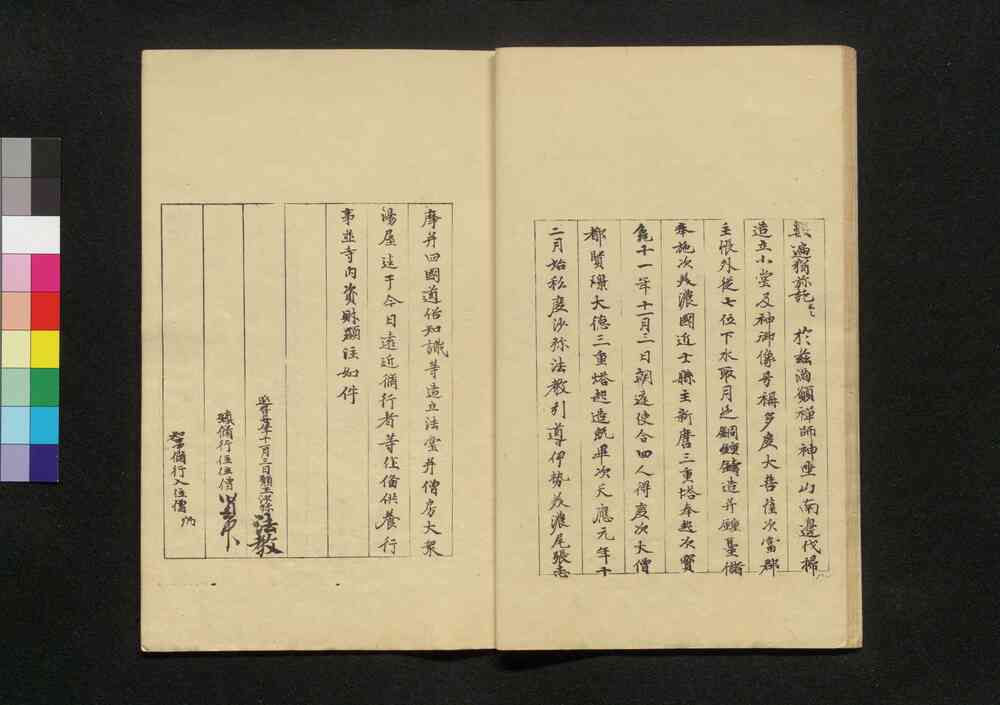 遍猶弥託云々 於茲満願禅師神坐山南邊伐掃
造立小堂及神御像号称多度大菩薩次當郡
主帳外従七位下水取月足銅鐘鋳造并鐘臺儲
奉施次美濃國近士縣主新麿三重塔奉起次寶
亀十一年十一月三日朝廷使令四人得度次大僧
都賢璟大德三重塔起造既畢次天應元年十
二月始私度沙弥法教引導伊勢美濃尾張志
摩并四國道俗知識等造立法堂并僧房大衆
湯屋迄于今日遠近修行者等作備供養行
事並寺内資財顕注如件
十一月三日願主沙弥法教
鎮修行住位僧
知事修行入位僧